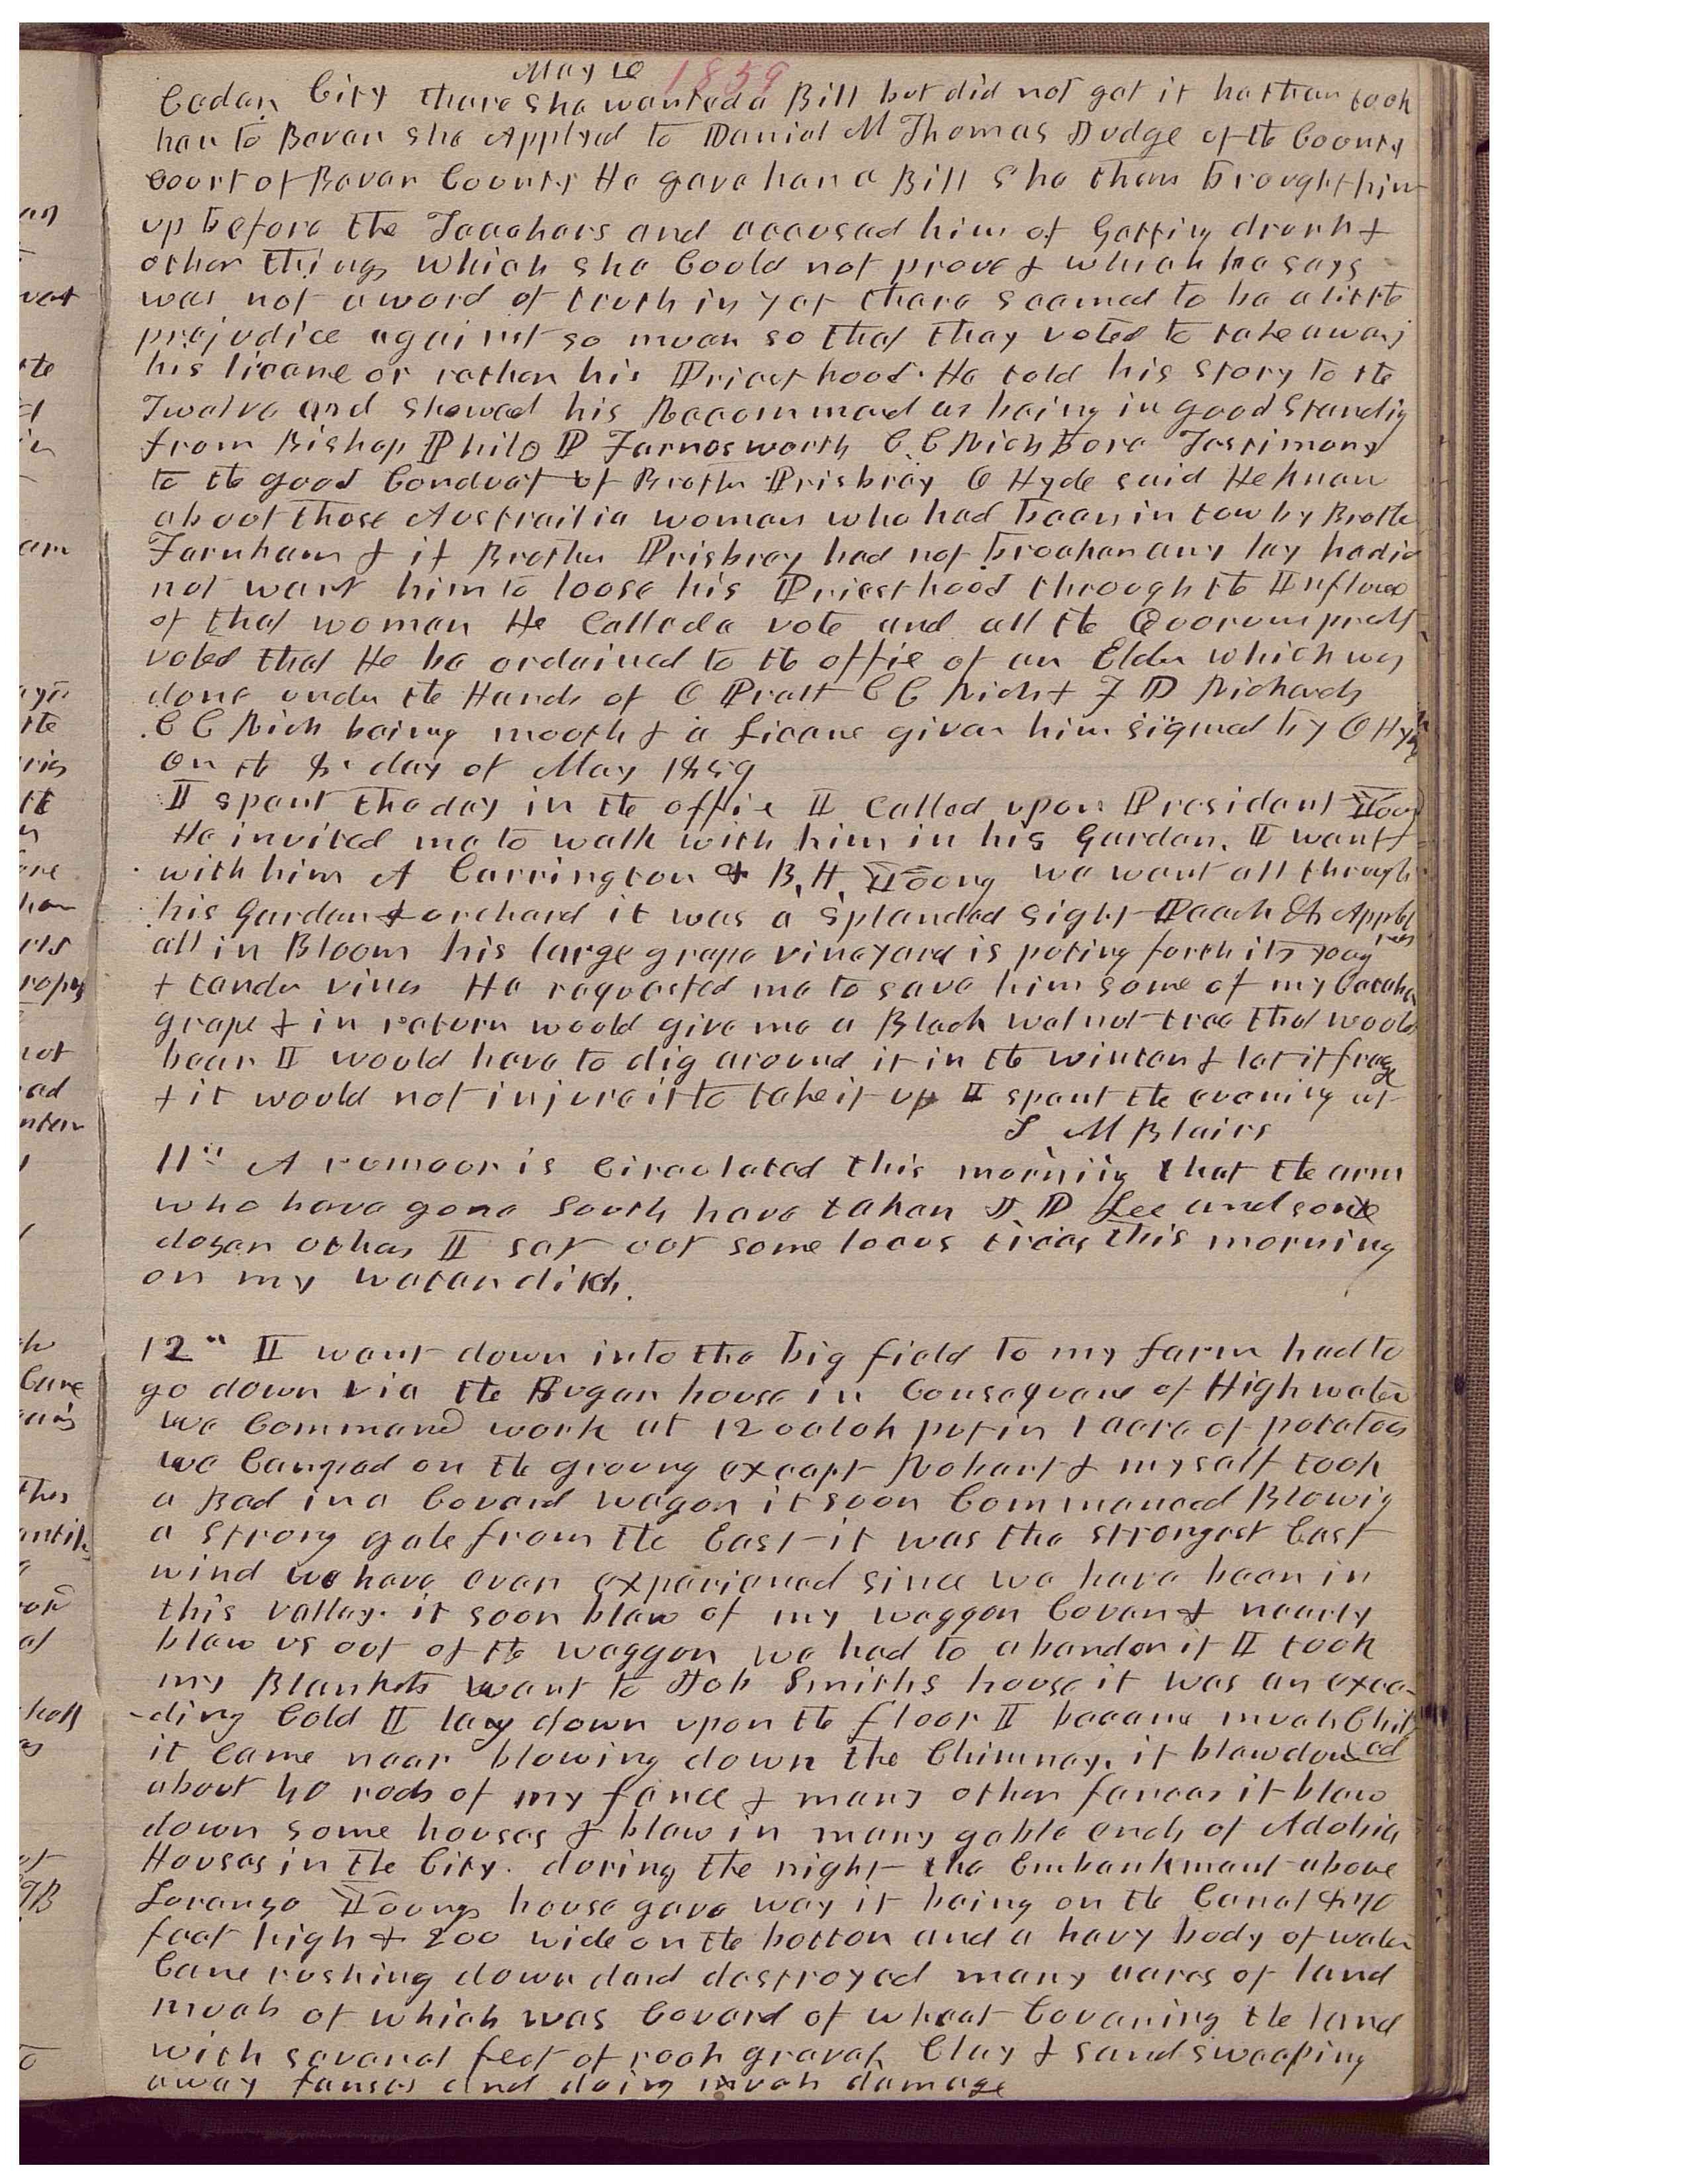 May 10 1859
Cedar City there she wanted a Bill but did not get it he then took
her to Bever she Applyed to Daniel M Thomas Judge of the County
Court of Bever County He gave her a Bill She then brought him
up before the Teachers and accused him of Getting drunk &
other things which she Could not prove & which he says
was not a word of truth in yet there seemed to be a little
prejudice against so much so that they voted to take away
his licence or rather his Priesthood. He told his story to the
Twelve and showed his Recommend as being in good Standig
from Bishop Philo P Farnosworth C. C Rich bore Testimony
to the good Conduct of Brother Prisbray O Hyde said He knew
about those Austrailia women who had been in tow by Brother
Farnham & if Brother Prisbray had not broaken any lay he did
not want him to loose his Priesthood through the Influence
of that woman He Called a vote and all the Quorum present
voted that He be ordained to the offie of an Elder which was
done under the Hands of O Pratt C C Rich & F D Richards
C C Rich being mouth & a licence given him signed by O Hyde
On the 8. day of May 1859
I spent the day in the office I Called upon President Young
He invited me to walk with him in his Garden. I went
with him A Carrington & B. H. Young we went all through
his Garden & orchard it was a splended sight Peach & Apple trees
all in Bloom his large grape vineyard is puting forth its young
& tender vines He requested me to save him some of my Catawba
grape & in return would give me a Black walnut tree that would
bear I would have to dig around it in the winter & let it freeze
& it would not injure it to take it up I spent the evening at
S M Blairs
11th A rumoor is Circulated this morniig that the army
who have gone South have taken J D Lee and some
dozen others I set out some locus trees this morning
on my water ditch.
12th I went down into the big field to my farm had to
go down via the Sugar house in Consequence of High water
we Commenced work at 12 oclok put in 1 acre of potatoes
we Camped on the groung except Robert & myself took
a Bed in a Coverd wagon it soon Commenced Blowig
a strong gale from the East it was the strongest East
wind we have ever experienced since we have been in
this valley. it soon blew of my waggon Cover & nearly
blew us out of the waggon we had to abandon it I took
my Blankets went to Job Smiths house it was an excee-
-ding Cold I lay down upon the floor I became much Chilled
it Came near blowing down the Chimney. it blew down
about 40 rods of my fence & many other fences it blew
down some houses & blew in many gable ends of Adobie
Houses in the City. during the night the Embankment above
Lorenzo Youngs house gave way it being on the Canal & 40
feet high & 200 wide on the bottom and a havy body of water
Came rushing down and destroyed many acres of land
much of which was Coverd of wheat Covering the land
with several feet of rock gravel, Clay & sand sweeping
away fenses and doing much damage